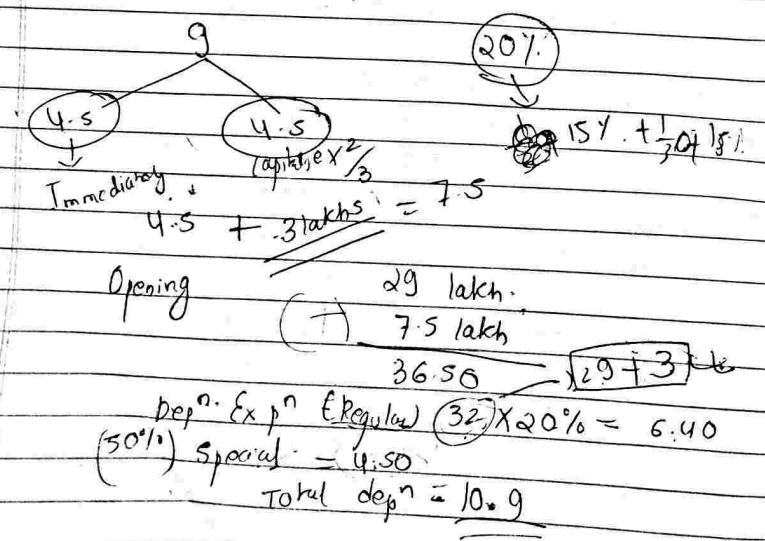 9
20%
4.5 4.5
15% + 1/3 of 15%
Immediately Capitalise x 2/3
4.5 + 3 lakhs = 7.5
Opening 29 lakh.
(+) 7.5 lakh
36.50 29+3
Depn. Expn (Regular) 32 x 20% = 6.40
(50%) Special = 4.50
Total depn = 10.9